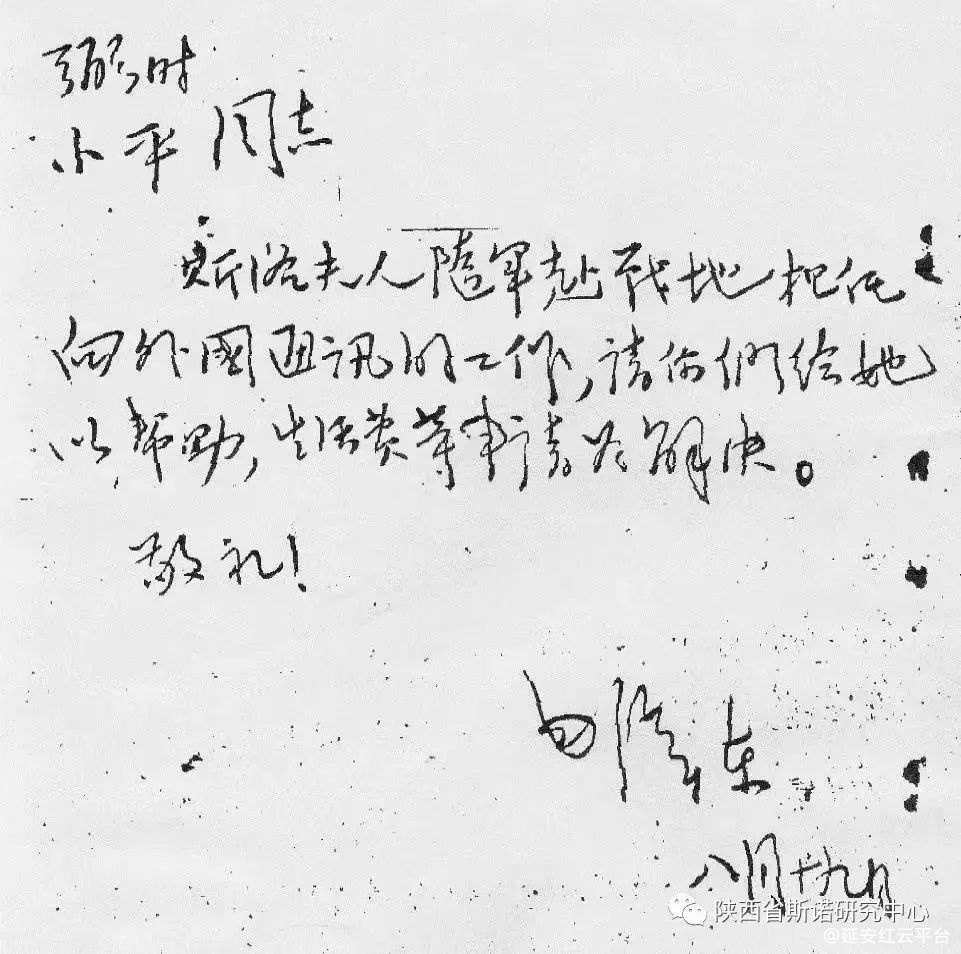 弼时
小平同志
斯洛夫人隨軍赴战地担任
向外國通訊的工作,請你們给她
以帮助,生活费等事請为解决。
敬礼!
毛泽东
八月十九日
陕西省斯诺研究中心
@延安红云平台